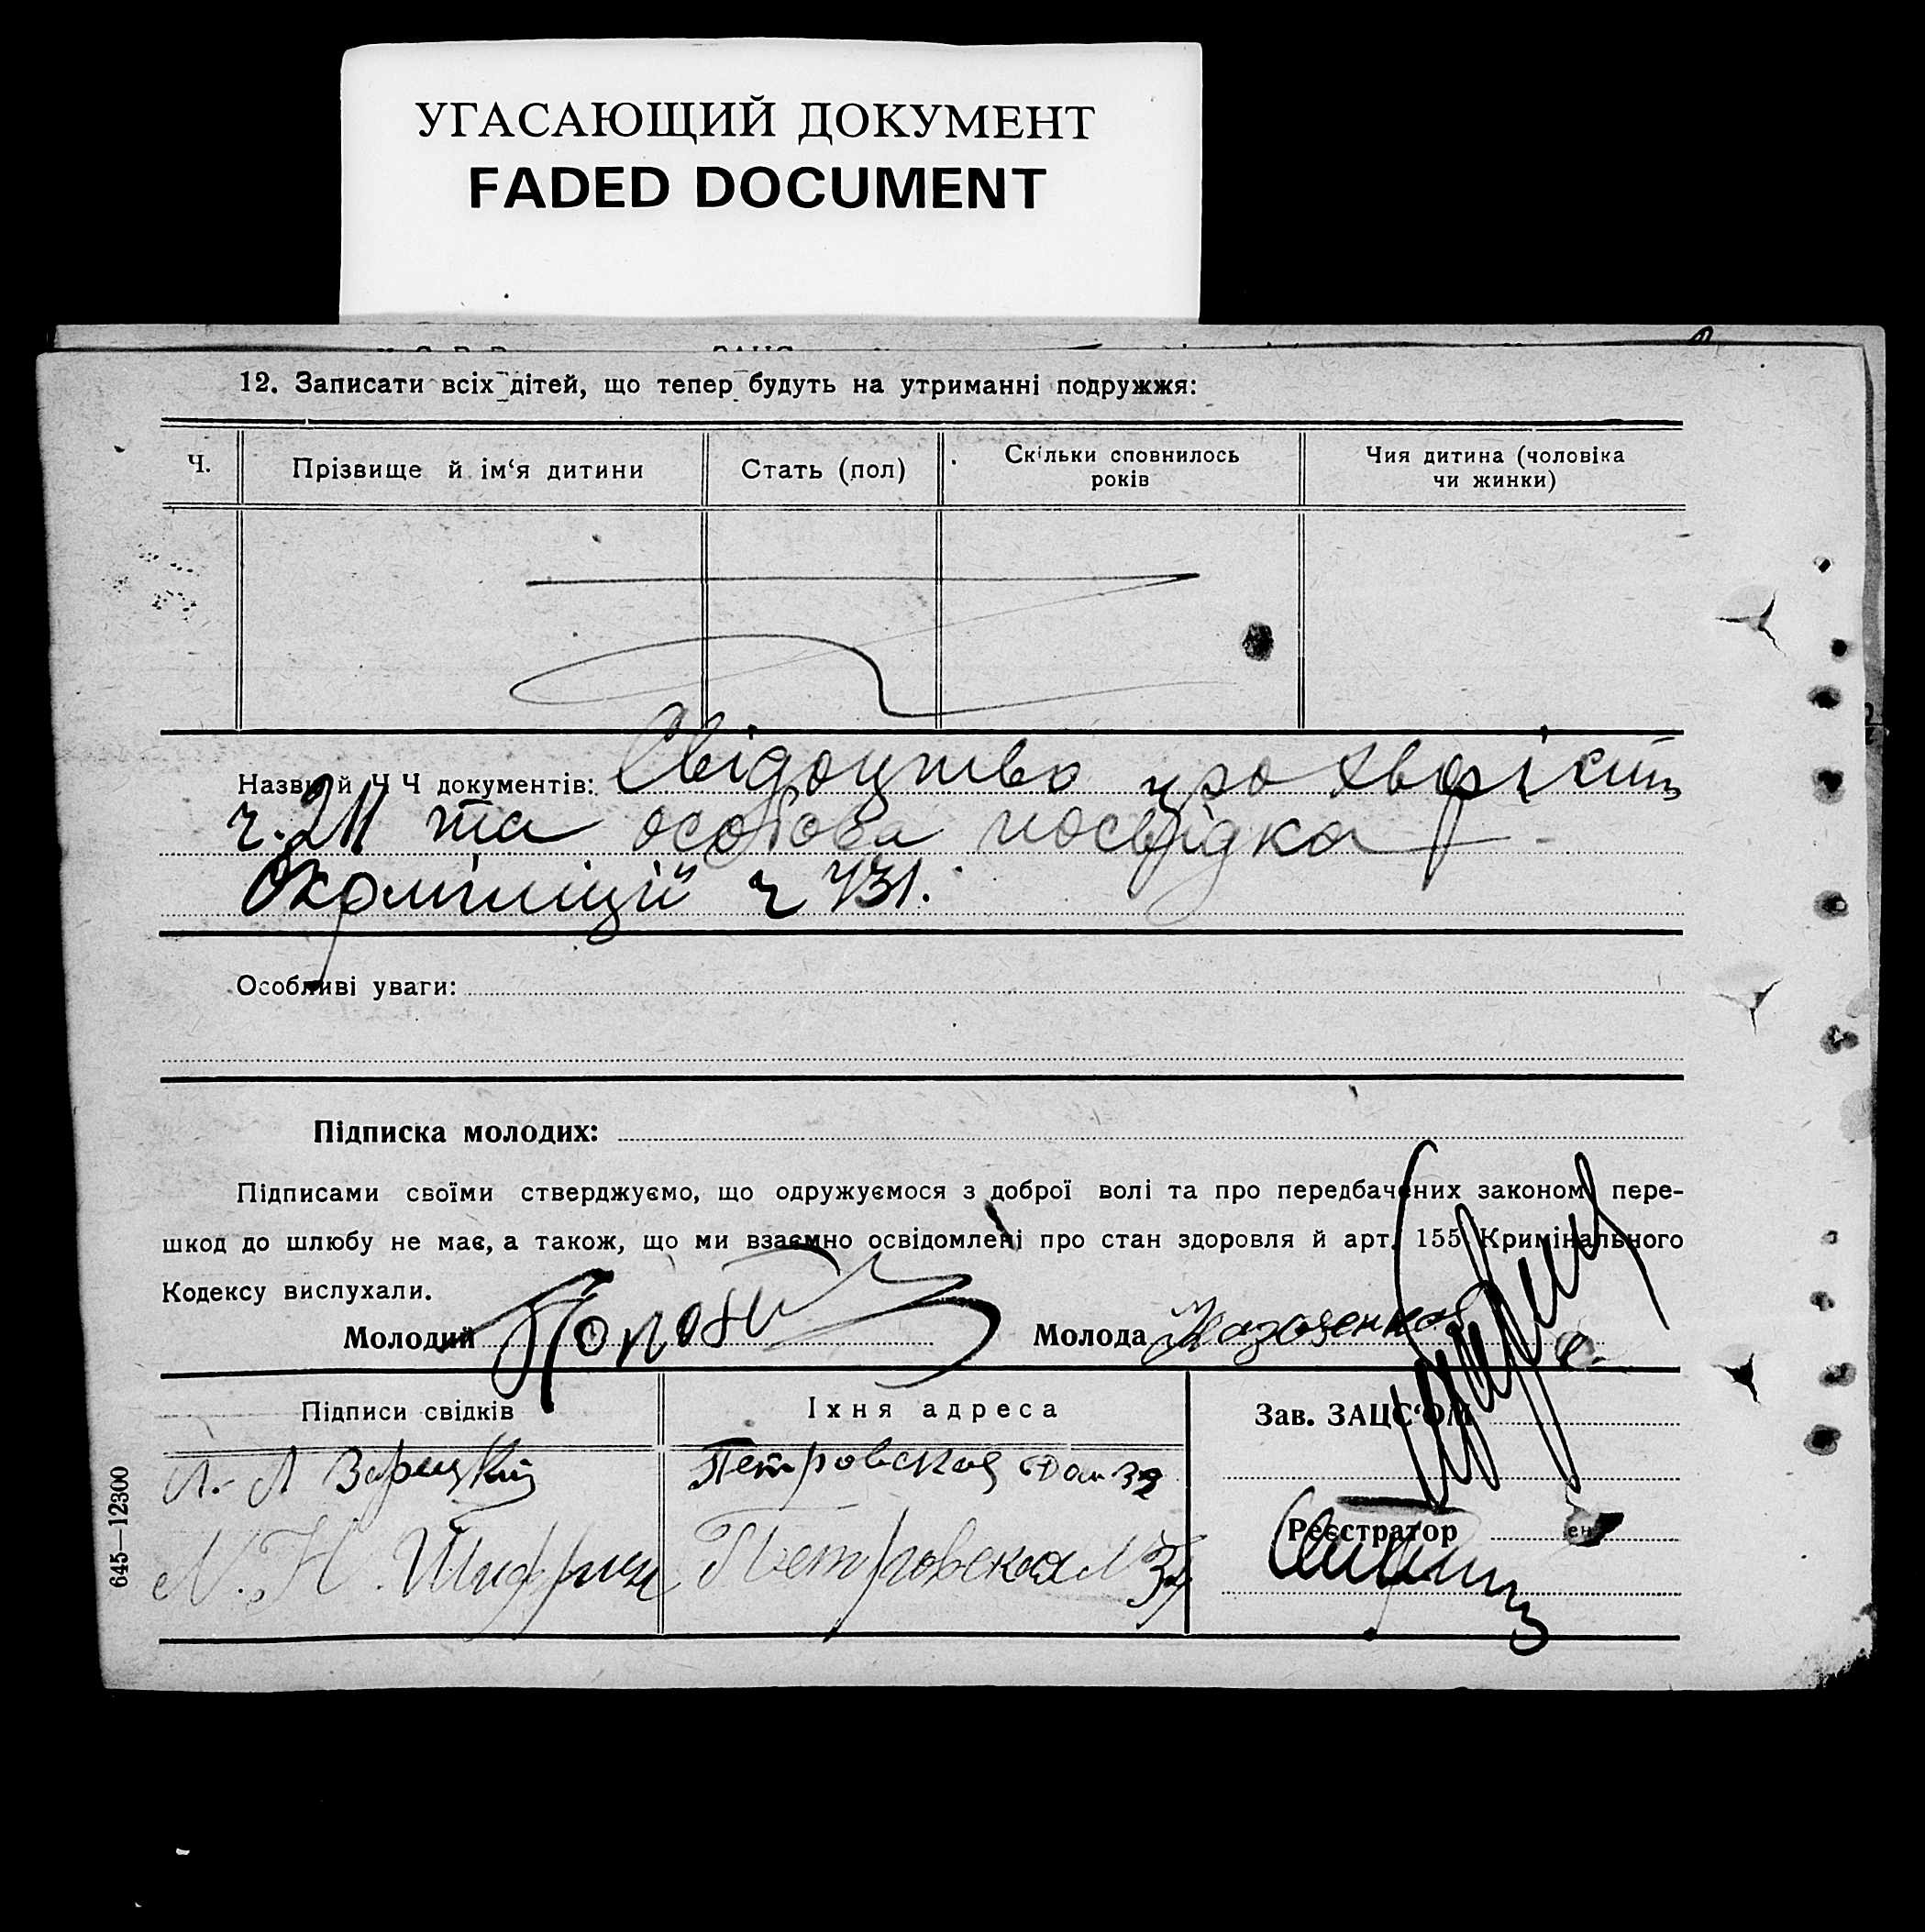 УГАСАЮЩИЙ ДОКУМЕНТ
FADED DOCUMENT
12. Записати всіх дітей, що тепер будуть на утриманні подружжя:
Ч. Прізвище й ім‘я дитини Стать (пол) Скільки сповнилось років Чия дитина (чоловіка чи жинки)
Назви й Ч Ч документів: Свідоцтво про
ч. 211 та особова посвідка
Окрміліції ч 731.
Особливі уваги:
Підписка молодих:
Підписами своїми стверджуємо, що одружуємося з доброї волі та про передбачених законом пере-
шкод до шлюбу не має, а також, що ми взаємно освідомлені про стан здоровля й арт. 155 Кримінального
Кодексу вислухали.
Молодий Молода
Підписи свідків Їхня адреса Зав. ЗАЦС‘ОМ
Л. Л Зарицкий Петровская Дом 32
Реєстратор
Н. Шифрин Петровская
645—12300